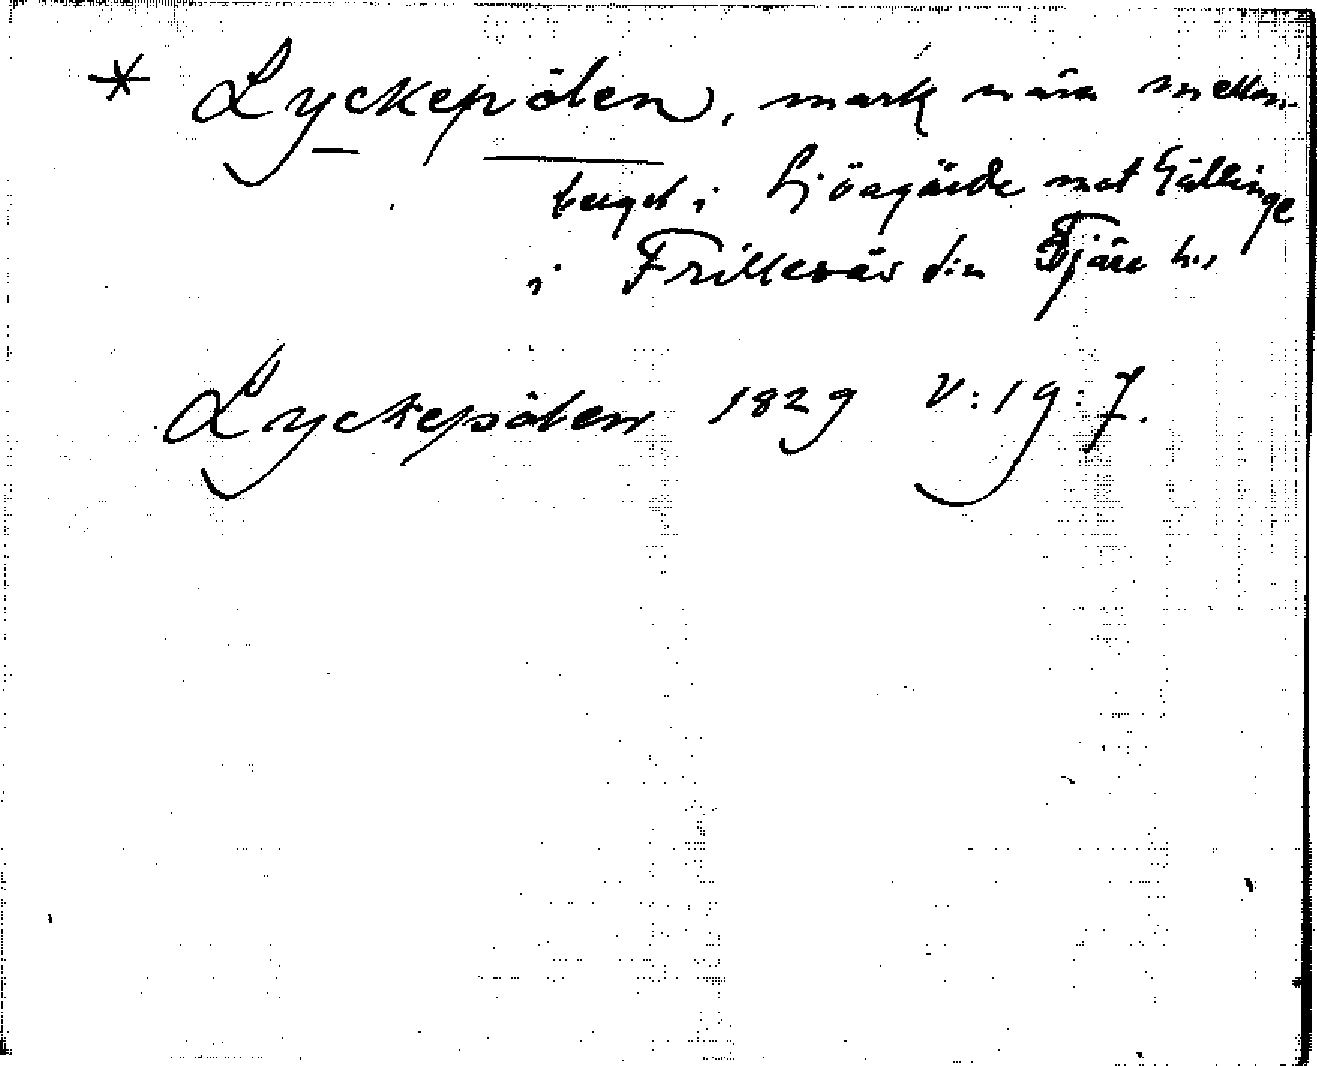 * Lyckepölen, mark nära mellan-
berget i Sjögärde mot Gällinge
i Frillesås sn Fjäre hd
Lyckepölen 1829 V:19:7.